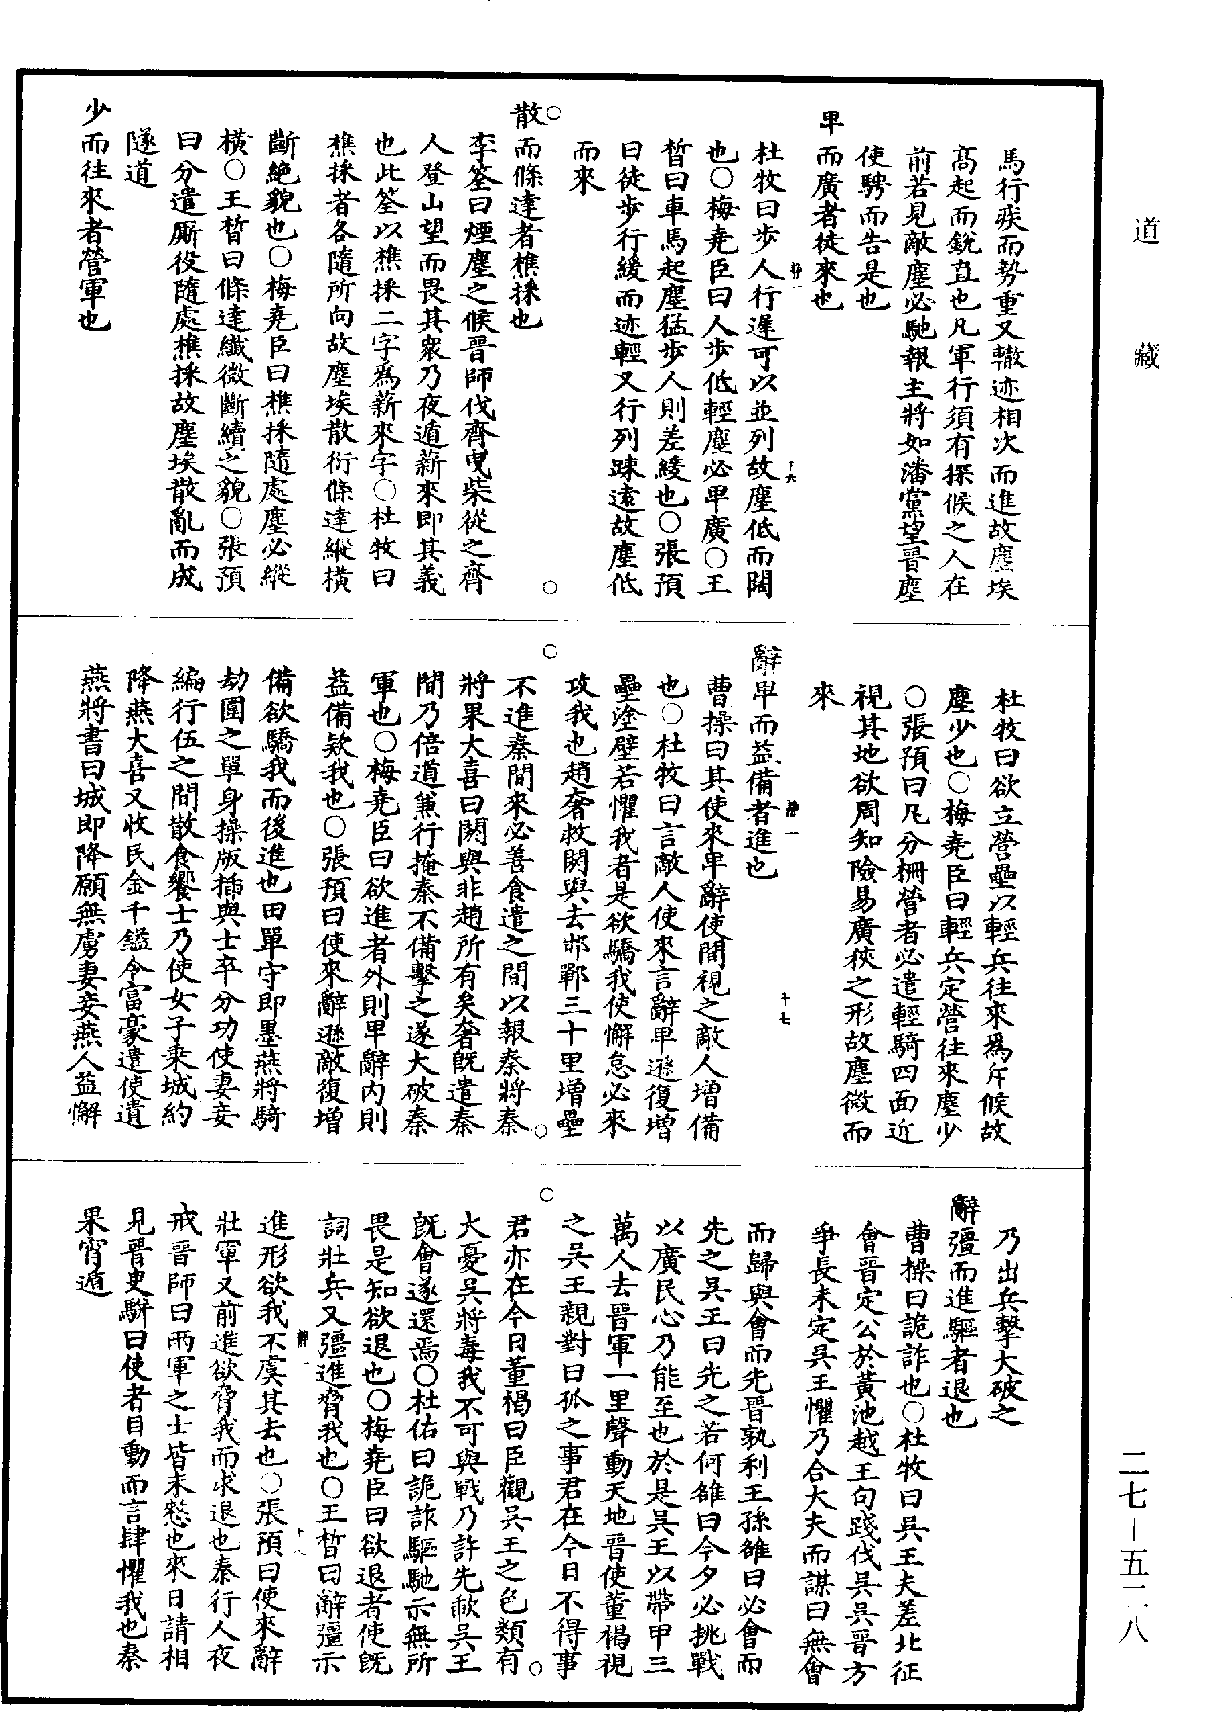 道藏
馬行疾而勢重又轍迹相次而進故塵埃
高起而銳直也凡軍行須有探候之人在
前若見敵塵必馳報主將如潘黨望晉塵
使騁而告是也
卑而廣者徒來也
杜牧曰步人行遲可以並列故塵低而闊
也○梅堯臣曰人步低輕塵必卑廣○王
晳曰車馬起塵猛步人則差緩也○張預
曰徒步行緩而迹輕又行列踈遠故塵低
而來
散而條達者樵採也
李筌曰煙塵之候晉師伐齊曳柴從之齊
人登山望而畏其衆乃夜遁薪來即其義
也此筌以樵採二字爲薪來字○杜牧曰
樵採者各隨所向故塵埃散衍條達縱橫
斷絶貌也○梅堯臣曰樵採隨處塵必縱
橫○王晳曰條達纖微斷續之貌○張預
曰分遣厮役隨處樵採故塵埃散亂而成
隧道
少而往來者營軍也
杜牧曰欲立營壘以輕兵往來爲斥候故
塵少也○梅堯臣曰輕兵定營往來塵少
○張預曰凡分柵營者必遣輕騎四面近
視其地欲周知險易廣狹之形故塵微而
來
辭卑而益備者進也
曹操曰其使來卑辭使間視之敵人增備
也○杜牧曰言敵人使來言辭卑遜復增
壘塗壁若懼我者是欲驕我使懈怠必來
攻我也趙奢救閼與去邯鄲三十里增壘
不進秦間來必善食遣之間以報秦將秦
將果大喜曰閼與非趙所有矣奢旣遣秦
間乃倍道兼行掩秦不備擊之遂大破秦
軍也○梅堯臣曰欲進者外則卑辭内則
益備欵我也○張預曰使來辭遜敵復增
備欲驕我而後進也田單守即墨燕將騎
劫圍之單身操版插與士卒分功使妻妾
編行伍之間散食饗士乃使女子乘城約
降燕大喜又收民金千鎰令富豪遺使遺
燕將書曰城即降願無虜妻妾燕人益懈
乃出兵擊大破之
辭彊而進驅者退也
曹操曰詭詐也○杜牧曰吳王夫差北征
會晉定公於黃池越王句踐伐吳吳晉方
爭長未定吳王懼乃合大夫而謀曰無會
而歸與會而先晉孰利王孫雒曰必會而
先之吳王曰先之若何雒曰今夕必挑戰
以廣民心乃能至也於是吳王以帶甲三
萬人去晉軍一里聲動天地晉使董褐視
之吳王親對曰孤之事君在今日不得事
君亦在今日董褐曰臣觀吳王之色類有
大憂吳將毒我不可與戰乃許先歃吳王
旣會遂還焉○杜佑曰詭詐驅馳示無所
畏是知欲退也○梅堯臣曰欲退者使旣
詞壯兵又彊進脅我也○王晳曰辭彊示
進形欲我不虞其去也○張預曰使來辭
壯軍又前進欲脅我而求退也秦行人夜
戒晉師曰兩軍之士皆未憖也來日請相
見晉史駢曰使者目動而言肆懼我也秦
果宵遁
二七—五二八